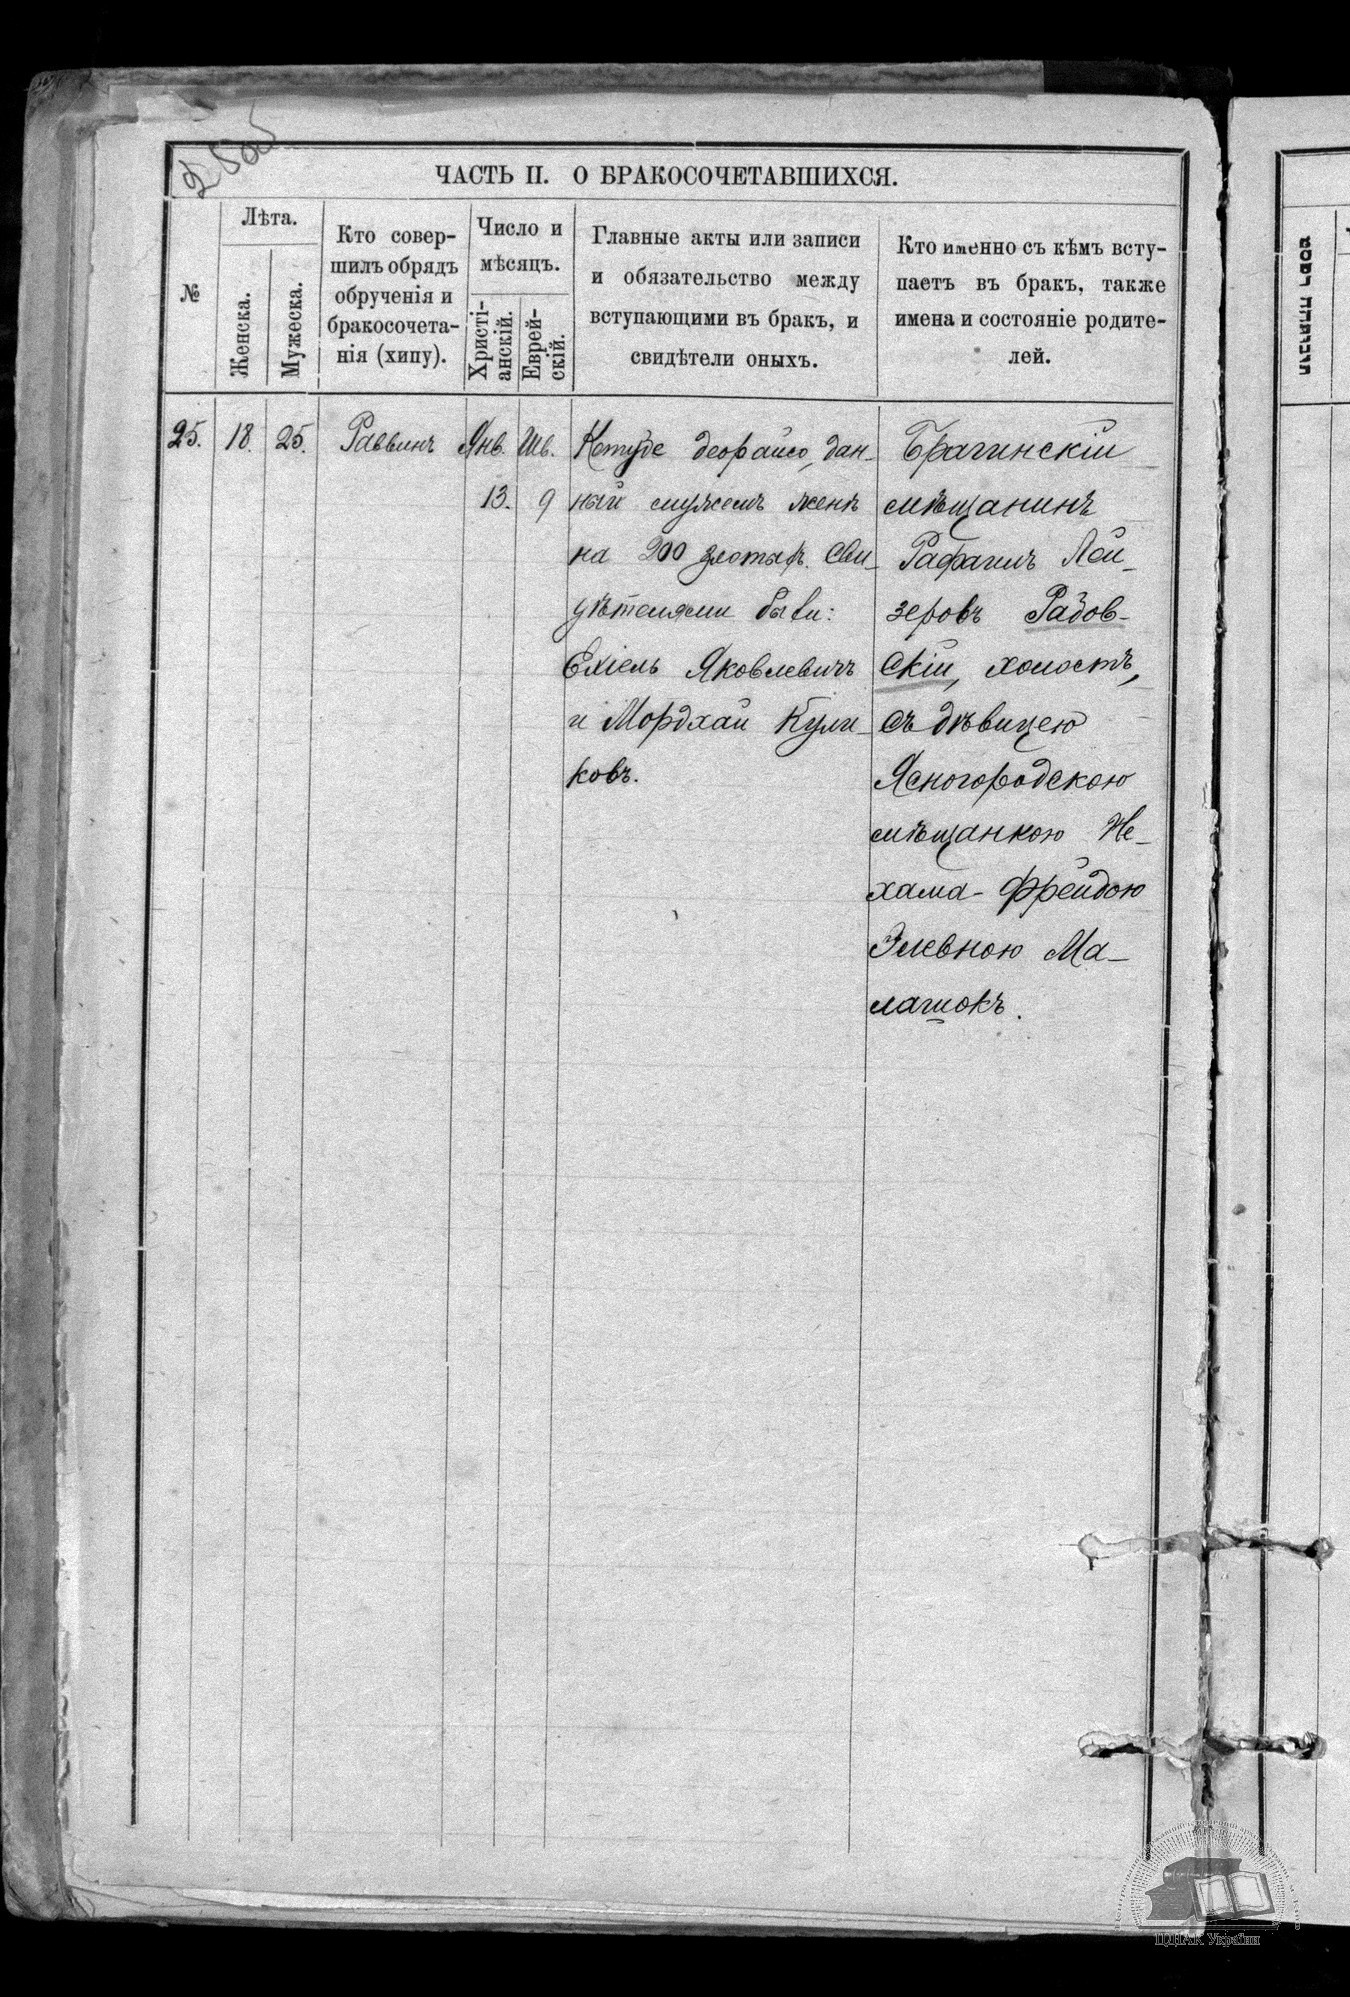 ЧАСТЬ II. О БРАКОСОЧЕТАВШИХСЯ.
№
Лѣта.
Женска.
Мужеска.
Кто совер-
шилъ обрядъ
обрученія и
бракосочета-
нія (хипу).
Число и
мѣсяцъ.
Христі-
анскій.
Еврей-
скій.
Главные акты или записи
и обязательство между
вступающими въ бракъ, и
свидѣтели оныхъ.
Кто именно съ кѣмъ всту-
паетъ въ бракъ, также
имена и состояніе родите-
лей.
25.
18.
25.
Раввинъ
Янв.
13.
Шв.
9
Кетубе деорайсо, дан-
ный мужемъ женѣ
на 200 злотыхъ. Сви-
дѣтелями были:
Ехіель Яковлевичъ
и Мордхай Кули-
ковъ.
Брагинскій
мѣщанинъ
Рафаилъ Лей-
зеровъ Радов-
скій, холостъ,
съ дѣвицею
Ясногородскою
мѣщанкою Не-
хама-Фрейдою
Элевною Ма-
лашокъ.
ЦДІАК України